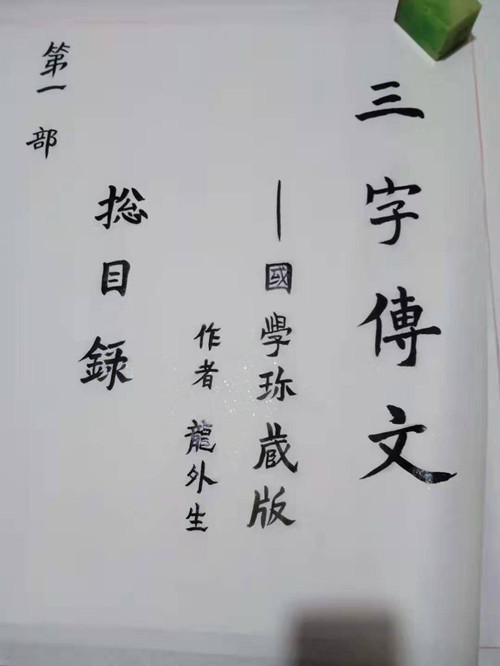 三字傳文
—國學珎蔵版
作者 龍外生
摠目録
第一部